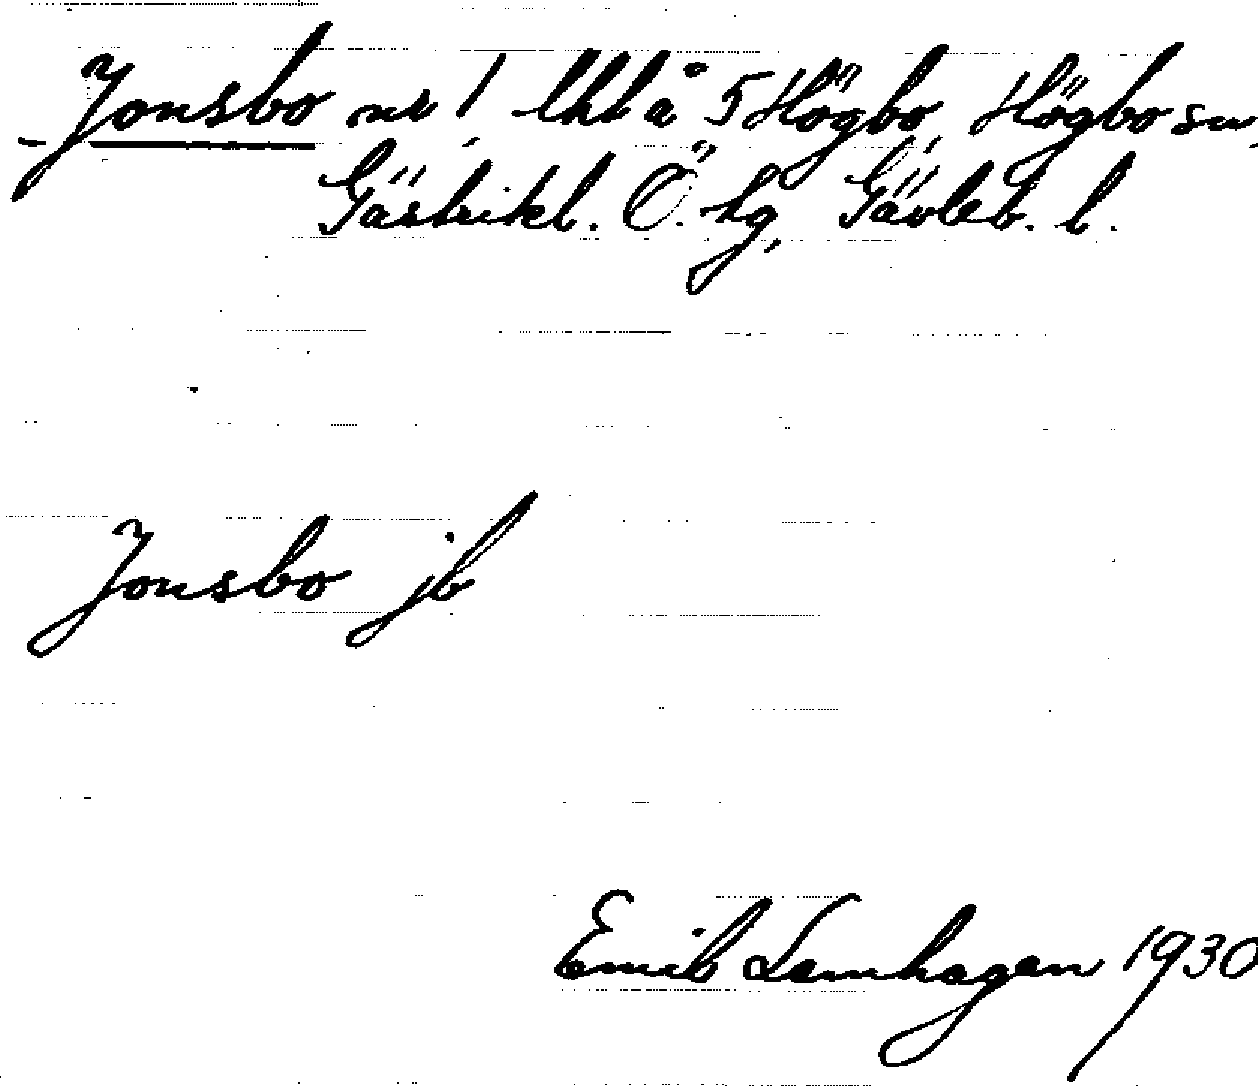 Jonsbo nr 1, lht å 5 Högbo, Högbo sn,
Gästrikl. Ö. hg, Gävleb. l.
Jonsbo jb
Emil Lamhagen 1930